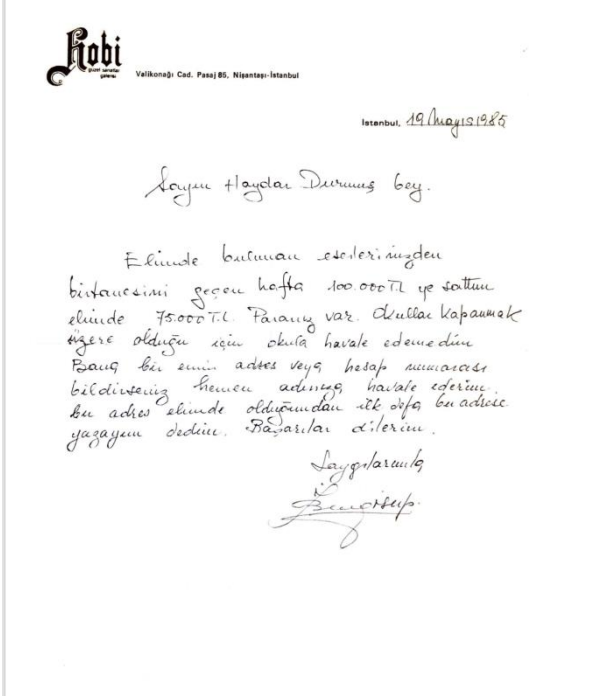 Hobi
güzel sanatlar
galerisi
Valikonağı Cad. Pasaj 85, Nişantaşı-İstanbul
İstanbul, 19 Mayıs 1985
Sayın Haydar Durmuş bey.
Elimde bulunan eserlerinizden
birtanesini geçen hafta 100.000 TL ye sattım
elimde 75.000 TL. Paranız var. Okullar kapanmak
üzere olduğu için okula havale edemedim
Bana bir emin adres veya hesap numarası
bildirseniz hemen adınıza havale ederim.
bu adres elimde olduğundan ilk defa bu adrese
yazayım dedim. Başarılar dilerim.
Saygılarımla